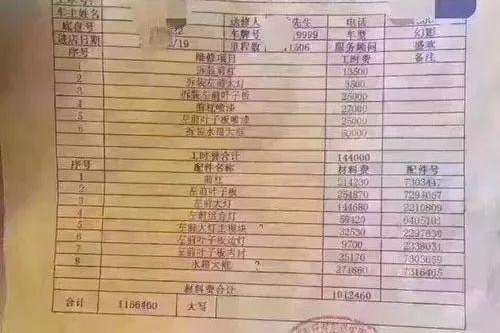 车主姓名 送修人 先生 电话
底盘号 车牌号 9999 车型 幻影
进店日期 /19 里程数 1506 服务顾问 盛欢
序号 维修项目 工时费 备注
1 拆装前杠 13500
2 拆装左前大灯 3500
3 拆装左前叶子板 25000
4 前杠喷漆 27000
5 左前叶子板喷漆 25000
6 拆装水箱大框 50000
工时费合计 144000
序号 配件名称 材料费 配件号
1 前杠 214230 7303447
2 左前叶子板 254870 7294057
3 左前大灯 144680 2210809
4 左前组合灯 59420 0405101
5 左前大灯主模块 32530 2297636
6 左前叶子板边灯 9700 2338031
7 左前叶子板内衬 25170 7303659
8 水箱大框 271860 7316465
材料费合计 1012460
合计 1156460 大写